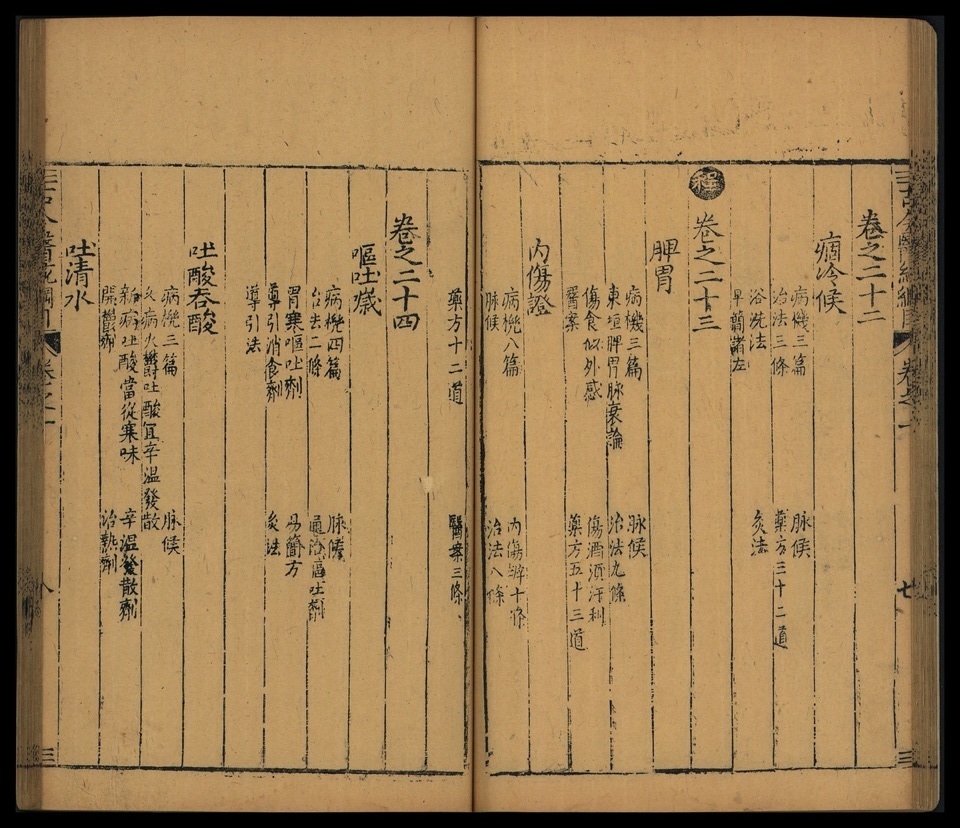 卷之二十二
痼冷候
病機三篇
脉候
治法三條
藥方三十二道
浴洗法
灸法
單簡諸方
程
卷之二十三
脾胃
病機三篇
脉候
東垣脾胃脉衰論
治法九條
傷食似外感
傷酒須汗利
醫案
藥方五十三道
內傷證
病機八篇
內傷辨十條
脉候
治法八條
藥方十二道
醫案三條
卷之二十四
嘔吐噦
病機四篇
脉候
治法二條
通治嘔吐劑
胃寒嘔吐劑
易簡方
導引消食劑
灸法
導引法
吐酸吞酸
病機三篇
脉候
久病火鬱吐酸宜辛溫發散
新病吐酸當從寒味
辛溫發散劑
開鬱劑
治熱劑
吐清水
卷之一
七
卷之一
八